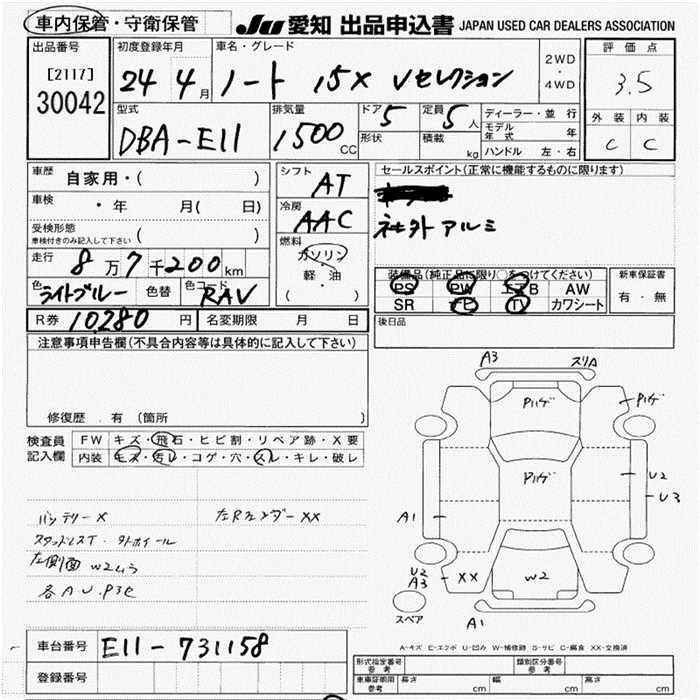 車内保管・守衛保管
JU 愛知 出品申込書 JAPAN USED CAR DEALERS ASSOCIATION
出品番号
[2117]
30042
初度登録年月
24 4月
車名・グレード
ノート 15X Vセレクション
2WD
・
4WD
評価点
3.5
外装 内装
C C
型式
DBA-E11
排気量
1500cc
ドア 5
形状
定員 5人
積載 kg
ディーラー・並行
モデル年式 年
ハンドル 左・右
車歴 自家用・( )
車検 ・年 月( 日)
受検形態
車検付きのみ記入して下さい ( )
走行 8万7千200km
色 ライトブルー 色替 色コード RAV
R券 10,280円 名変期限 月 日
シフト
AT
冷房
AAC
燃料
ガソリン
・
軽・油
( )
セールスポイント(正常に機能するものに限ります)
社外アルミ
装備品(純正品に限り○をつけてください)
PS PW エアB AW
SR ナビ TV カワシート
新車保証書
有・無
後日品
注意事項申告欄(不具合内容等は具体的に記入して下さい)
修復歴 . 有 (箇所 )
検査員記入欄
FW キズ・飛石・ヒビ割・リペア跡・X要
内装 キズ・汚レ・コゲ・穴・スレ・キレ・破レ
バッテリーX
スタッドレスT・外ホイール
左側面 W2ムラ
各AU.P3セ
左Rフェンダー XX
A3 スリA
Pハゲ
Pハゲ
Pハゲ
U2
U3
A1
U2
A3
XX
W2
A1
スペア
A-キズ E-エクボ U-凹み W-補修跡 S-サビ C-腐食 XX-交換済
車台番号 E11-731158
登録番号
形式指定番号 参考
類別区分番号 参考
車庫証明用 参考
長さ cm 幅 cm 高さ cm